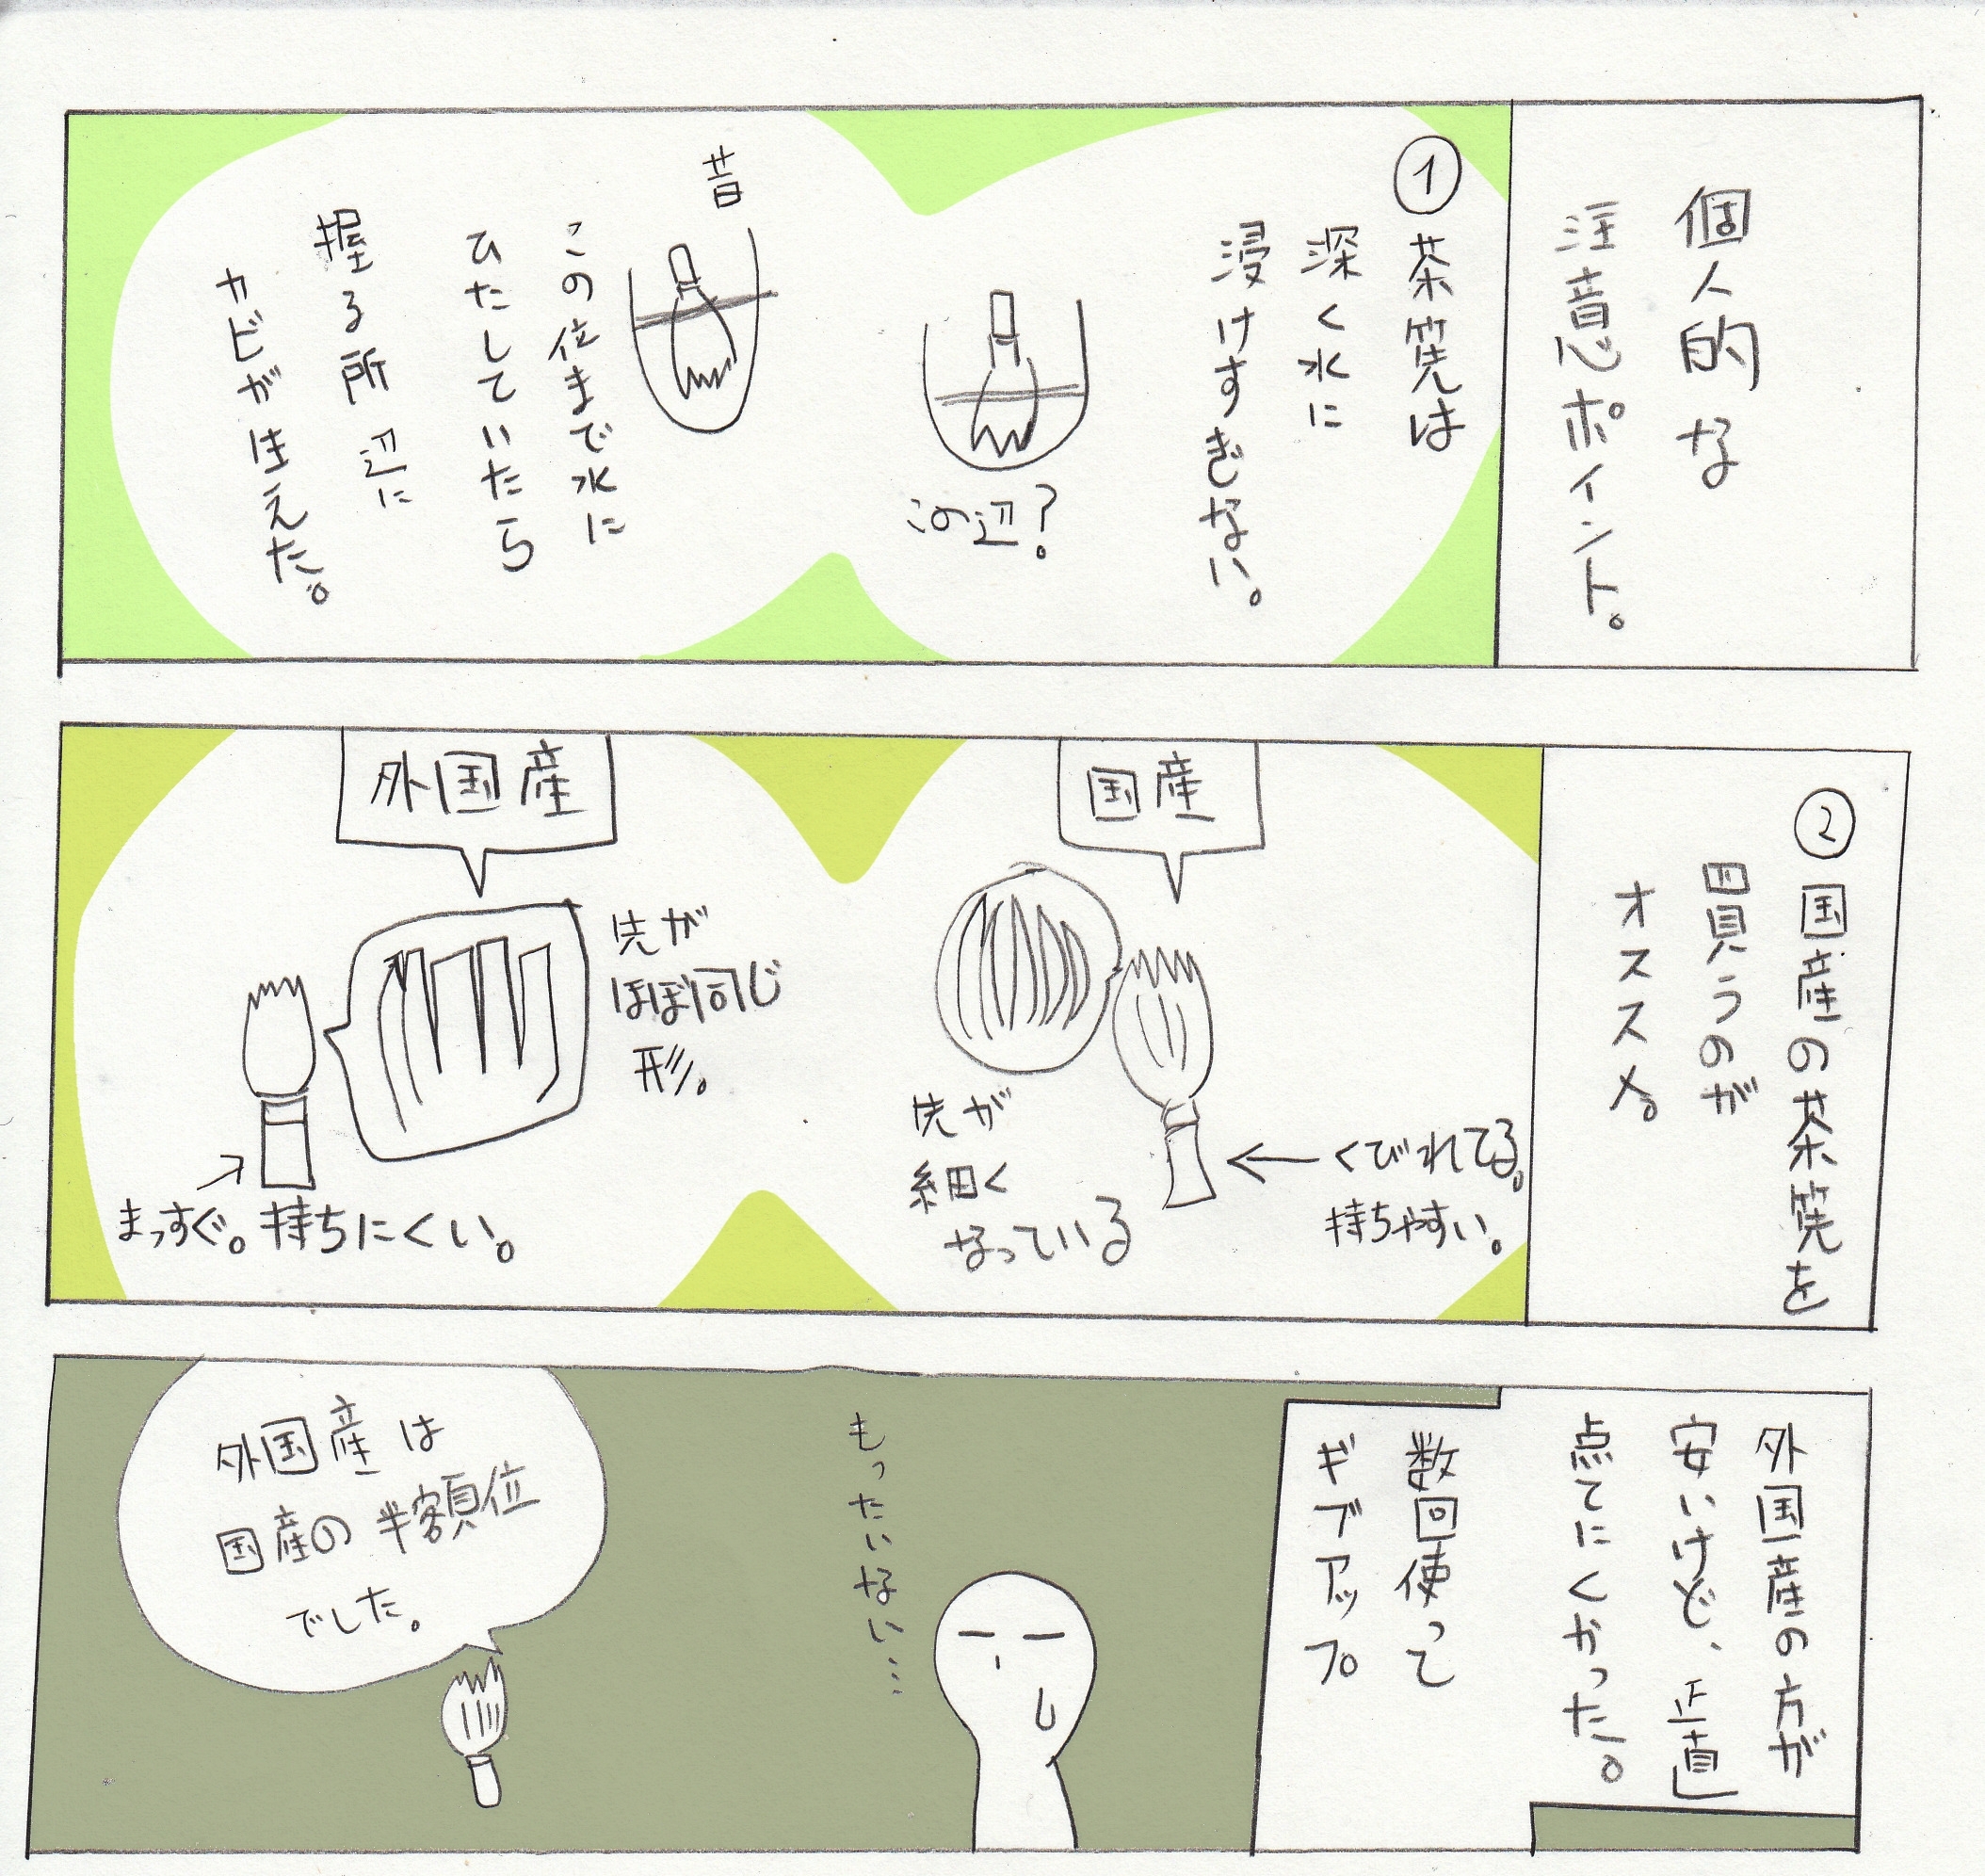 個人的な
注意ポイント。
①茶筅は
深く水に
浸けすぎない。
この辺?
昔
この位まで水に
ひたしていたら
握る所辺に
カビが生えた。
②国産の茶筅を
買うのが
オススメ。
国産
くびれてる。
持ちやすい。
先が
細く
なっている
外国産
先が
ほぼ同じ
形。
まっすぐ。持ちにくい。
外国産の方が
安いけど、正直
点てにくかった。
数回使って
ギブアップ
もったいない……
外国産は
国産の半額位
でした。